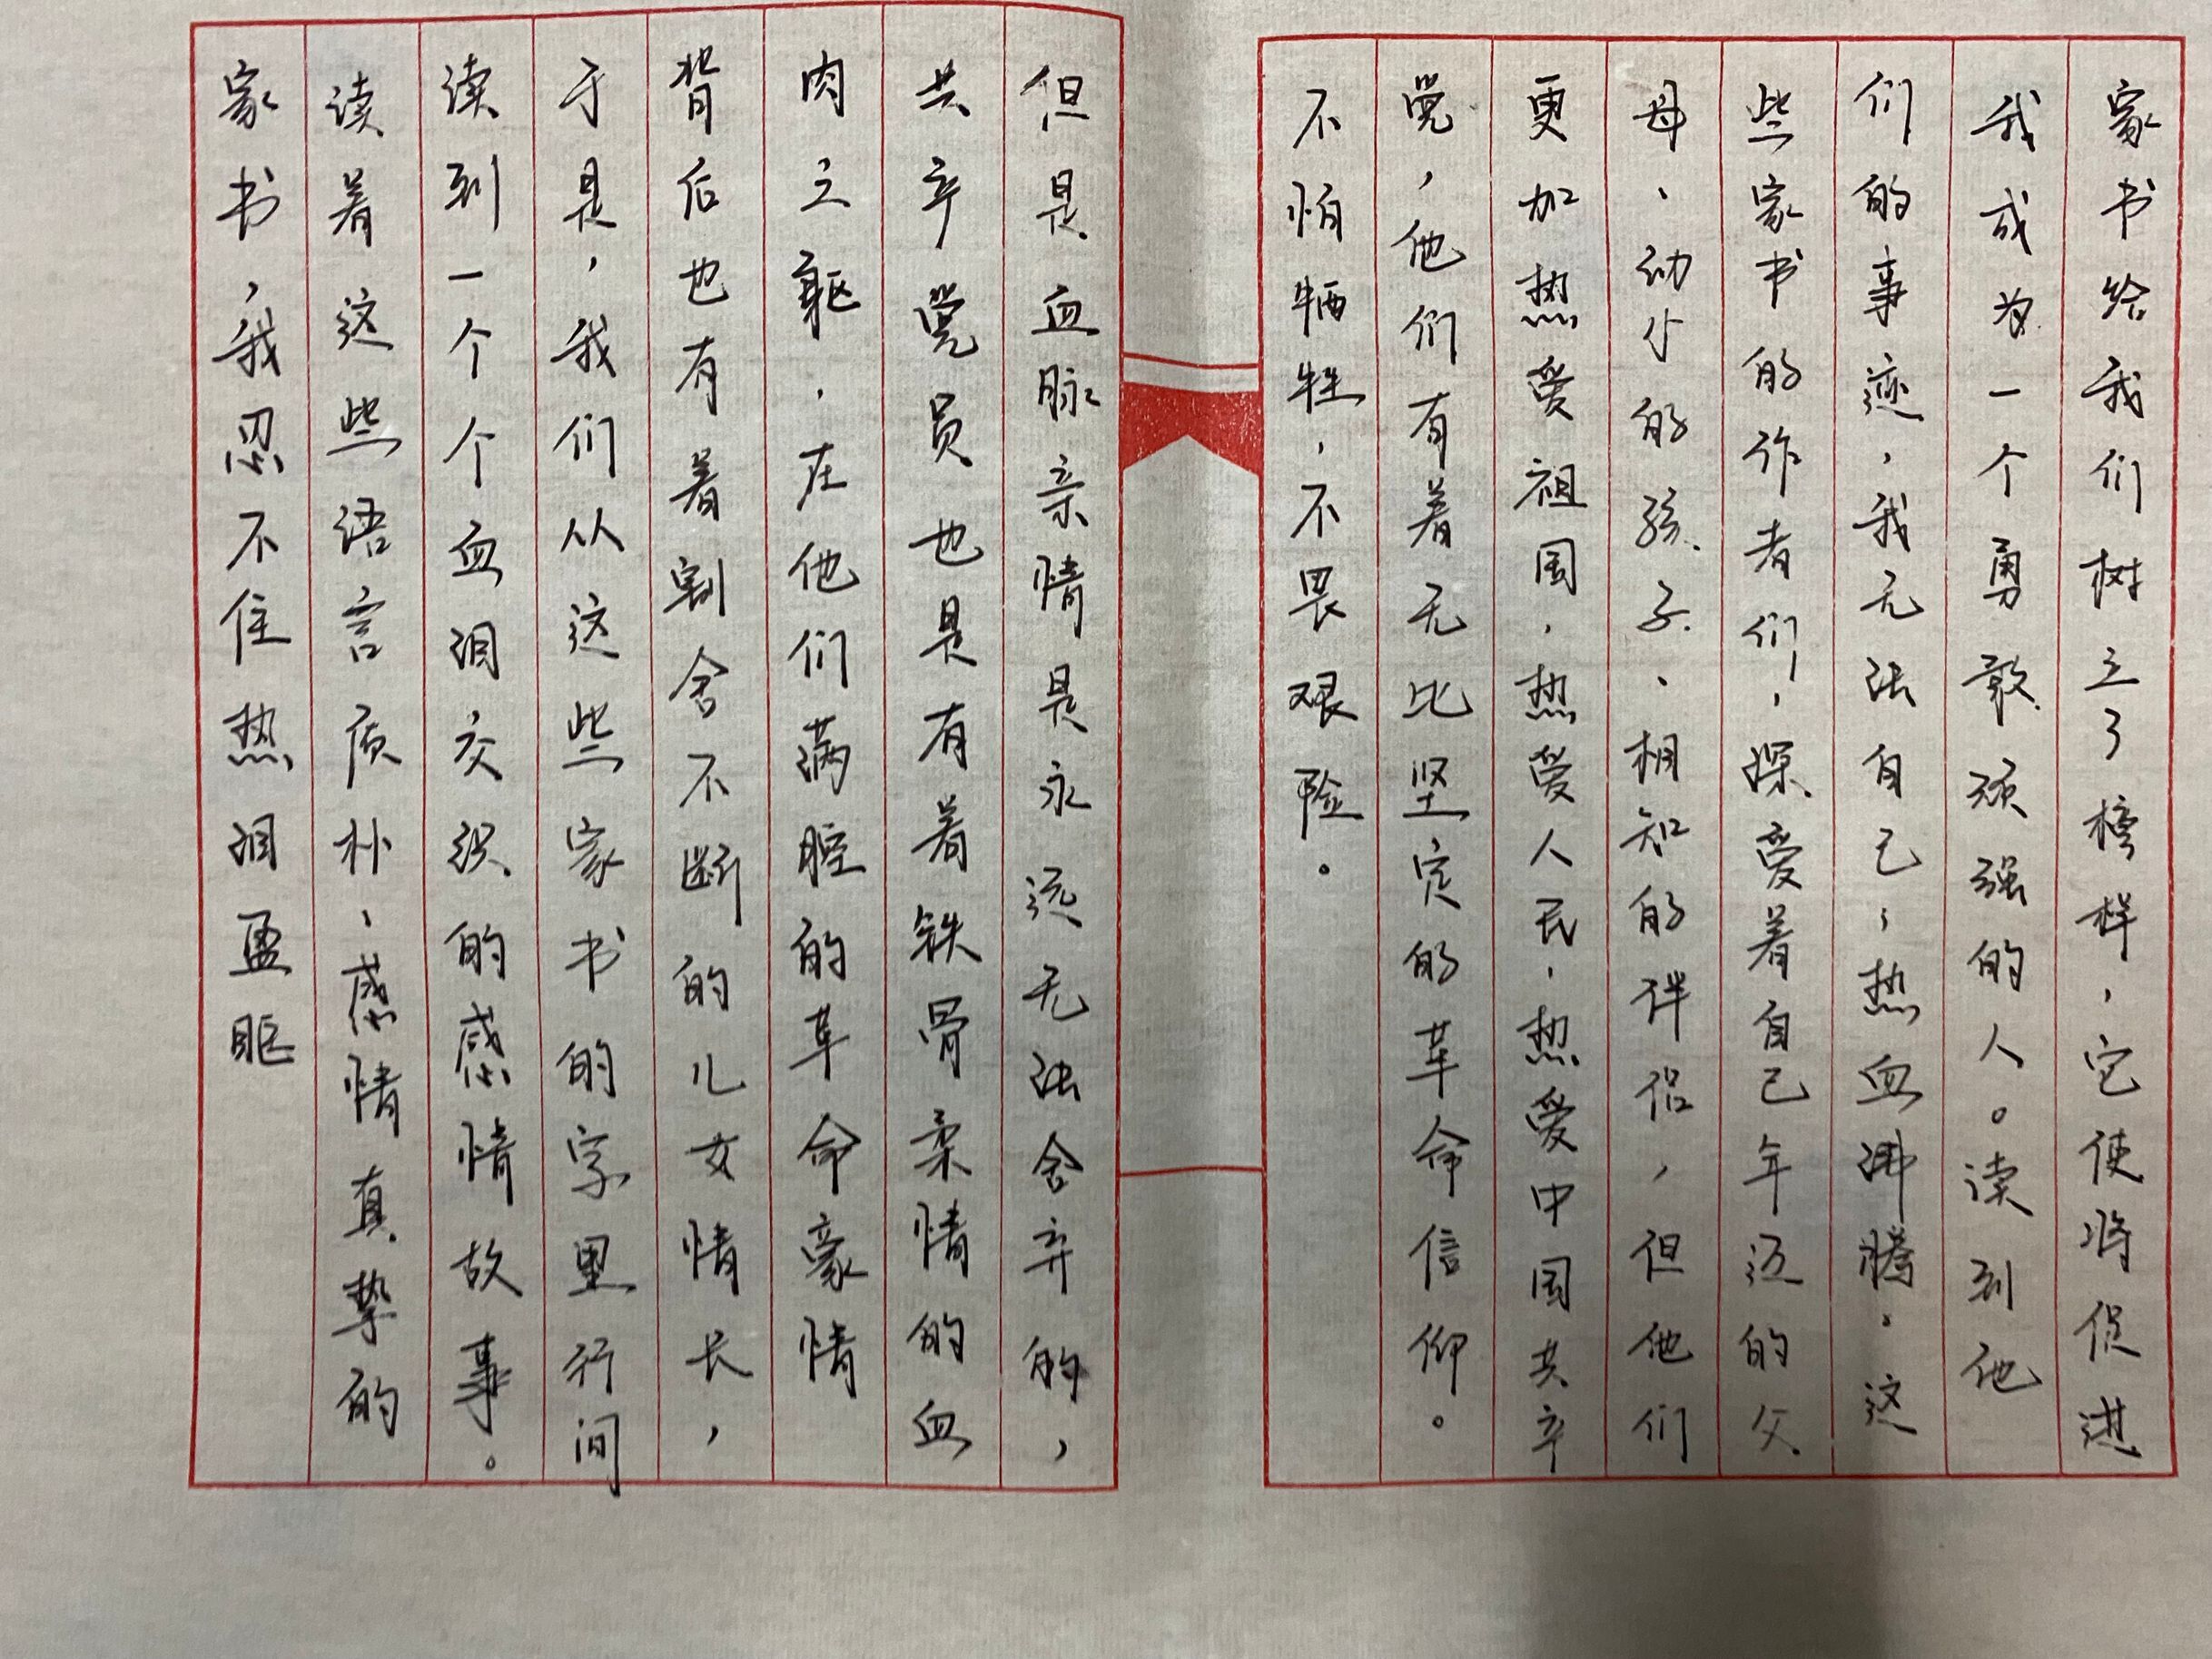 家书给我们树立了榜样，它使将促进
我成为一个勇敢顽强的人。读到他
们的事迹，我无法自已，热血沸腾。这
些家书的作者们，深爱着自己年迈的父
母、幼小的孩子、相知的伴侣，但他们
更加热爱祖国，热爱人民，热爱中国共产
党，他们有着无比坚定的革命信仰。
不怕牺牲，不畏艰险。
但是血脉亲情是永远无法舍弃的，
共产党员也是有着铁骨柔情的血
肉之躯，在他们满腔的革命豪情
背后也有着割舍不断的儿女情长，
于是，我们从这些家书的字里行间
读到一个个血泪交织的感情故事。
读着这些语言质朴、感情真挚的
家书，我忍不住热泪盈眶